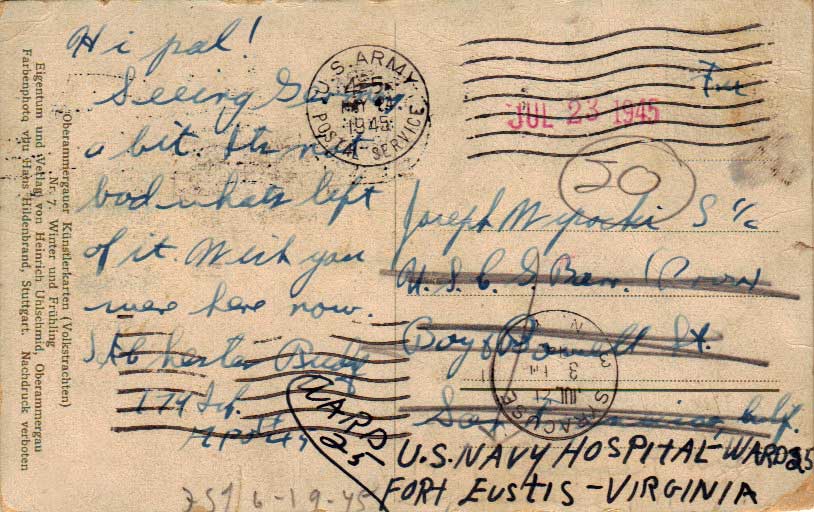 Hi pal!
Seeing Germany
a bit. Its not
bad whats left
of it. Wish you
were here now.
S/Sgt. Chester
174
U.S. ARMY
POSTAL SERVICE
445
MAY
1945
Free
JUL 23 1945
50
Joseph S 1/c
U.S.C.G. Barr. (Room)
Bay & Powell St.
San Francisco, Calif.
SYRACUSE
JUL 21
3 PM
N.Y.
WARD
25
U.S. NAVY HOSPITAL-WARD 25
FORT EUSTIS-VIRGINIA
6-19-45
"Oberammergauer Künstlerkarten (Volkstrachten)
Nr. 7. Winter und Frühling
Eigentum und Verlag von Heinrich Uhlschmid, Oberammergau
Farbenphoto von Hans Hildenbrand, Stuttgart. Nachdruck verboten